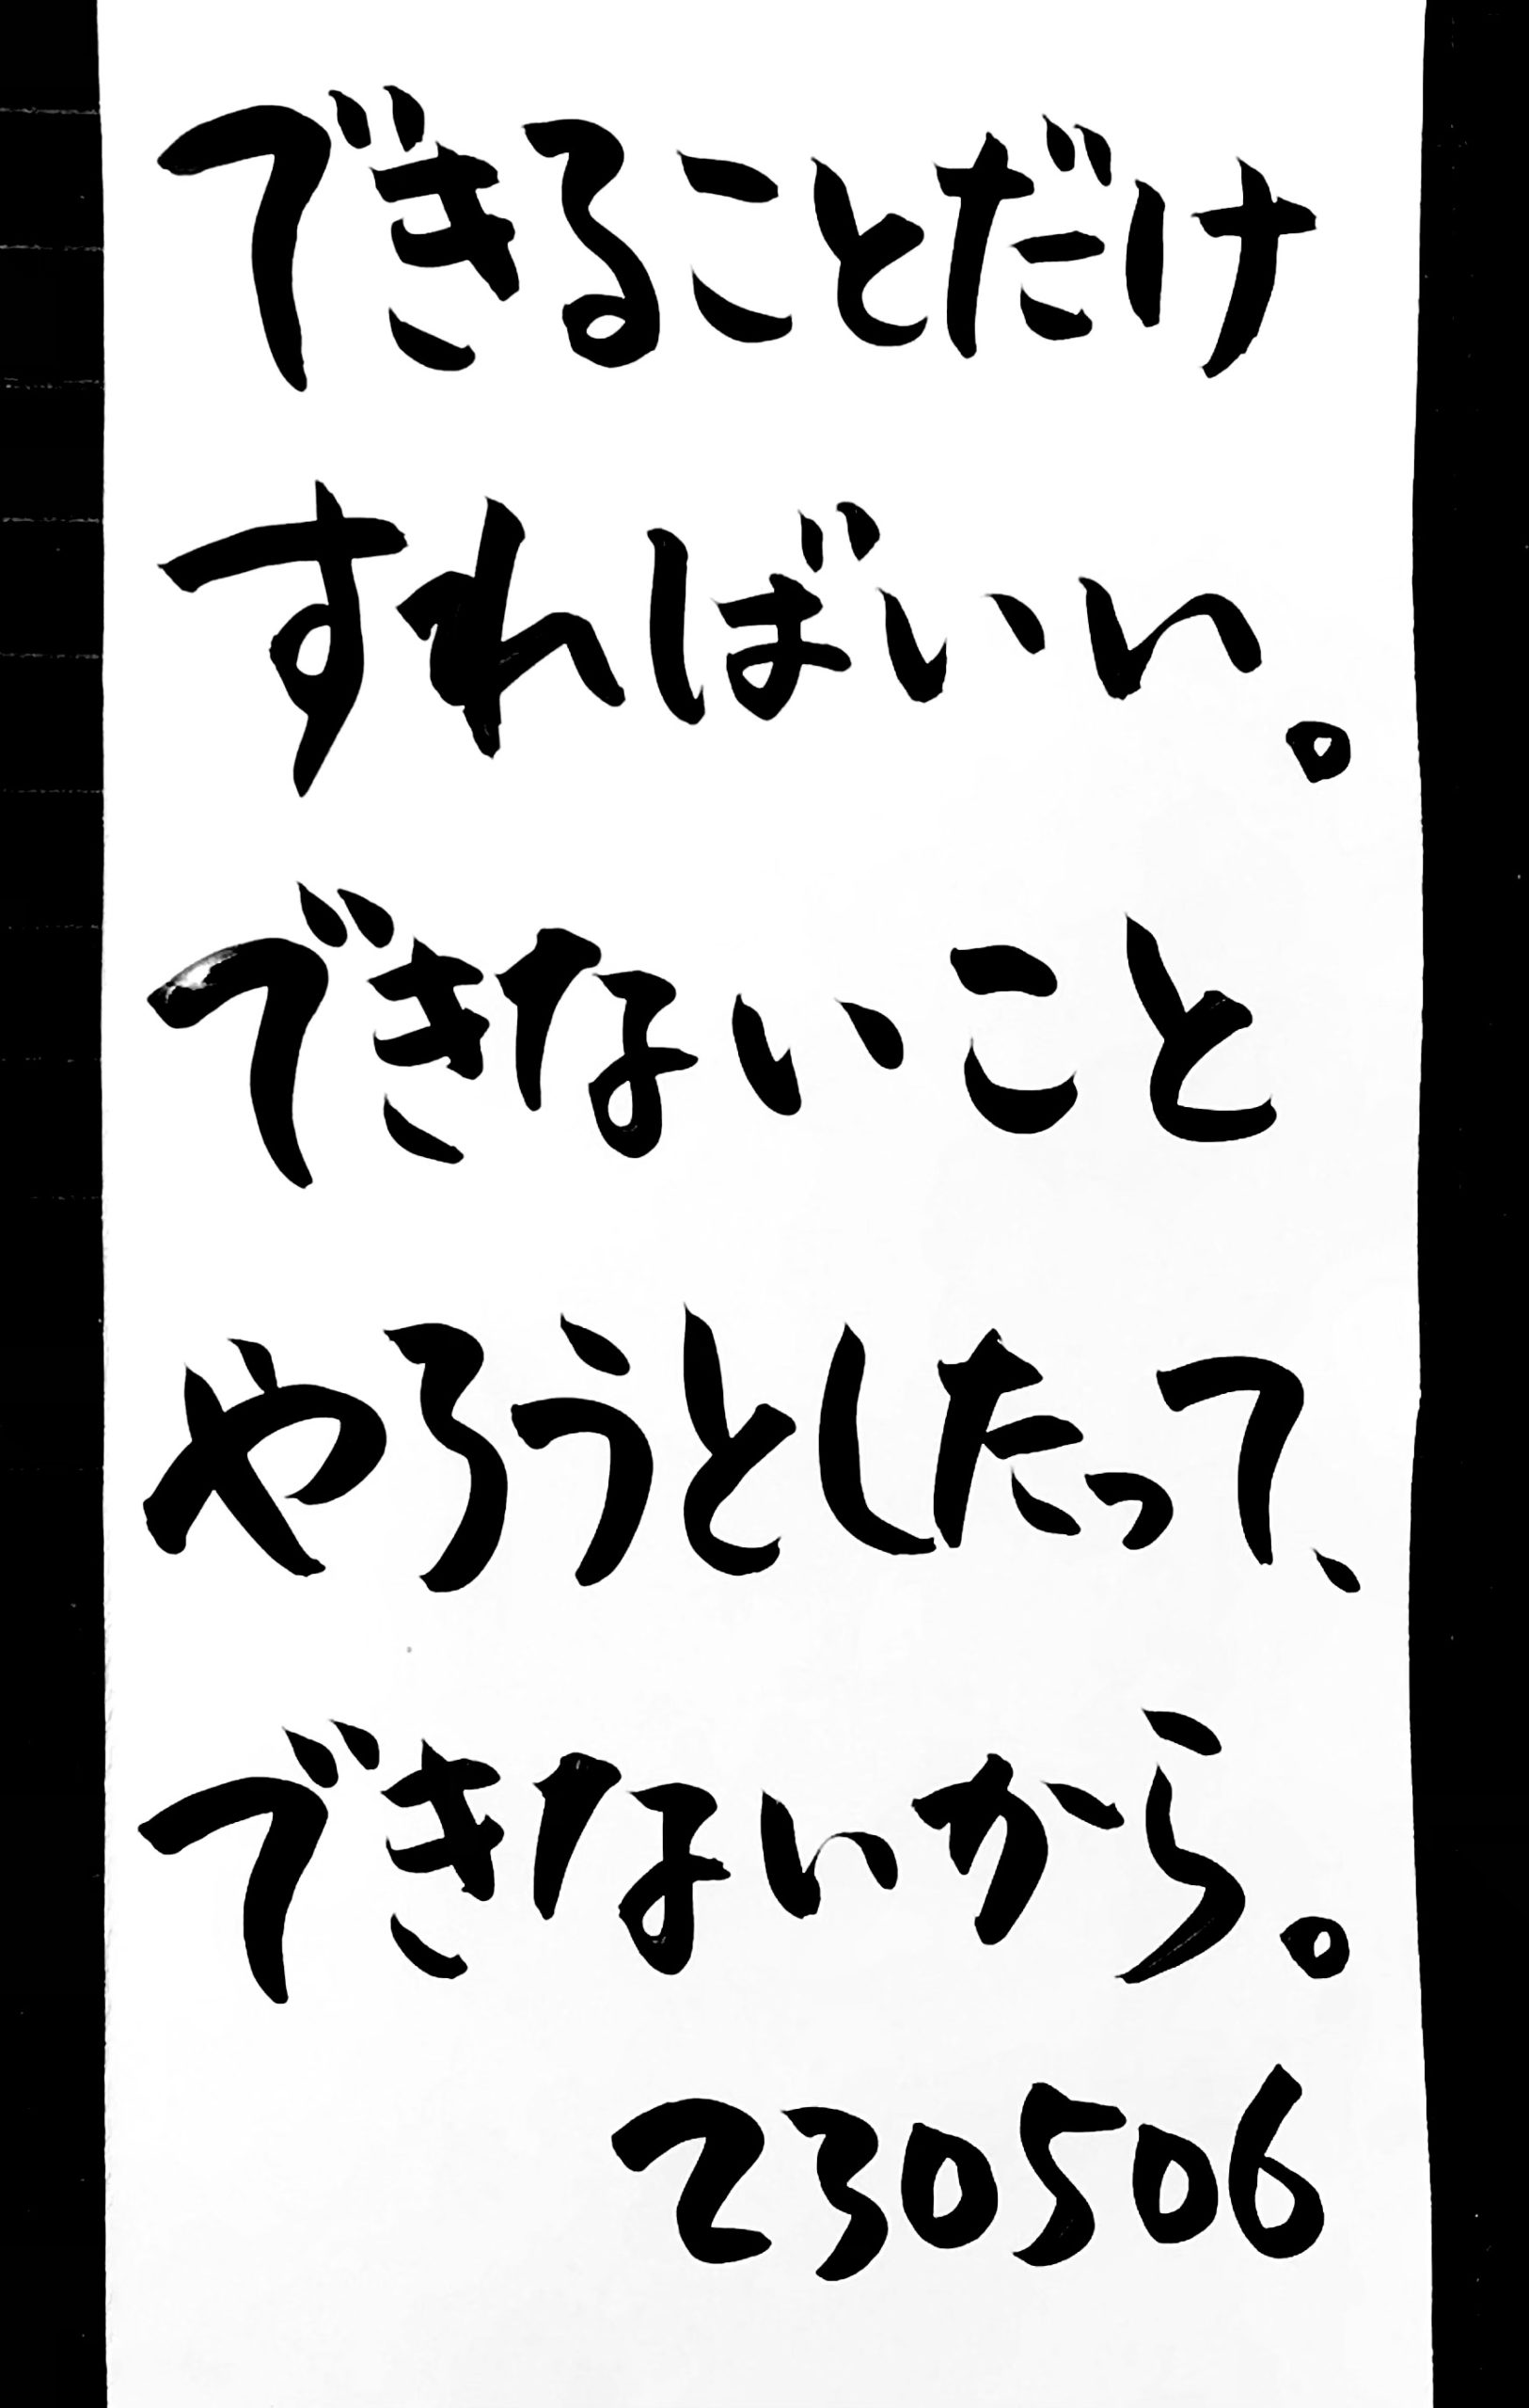 できることだけ
すればいい。
できないこと
やろうとしたって、
できないから。
230506